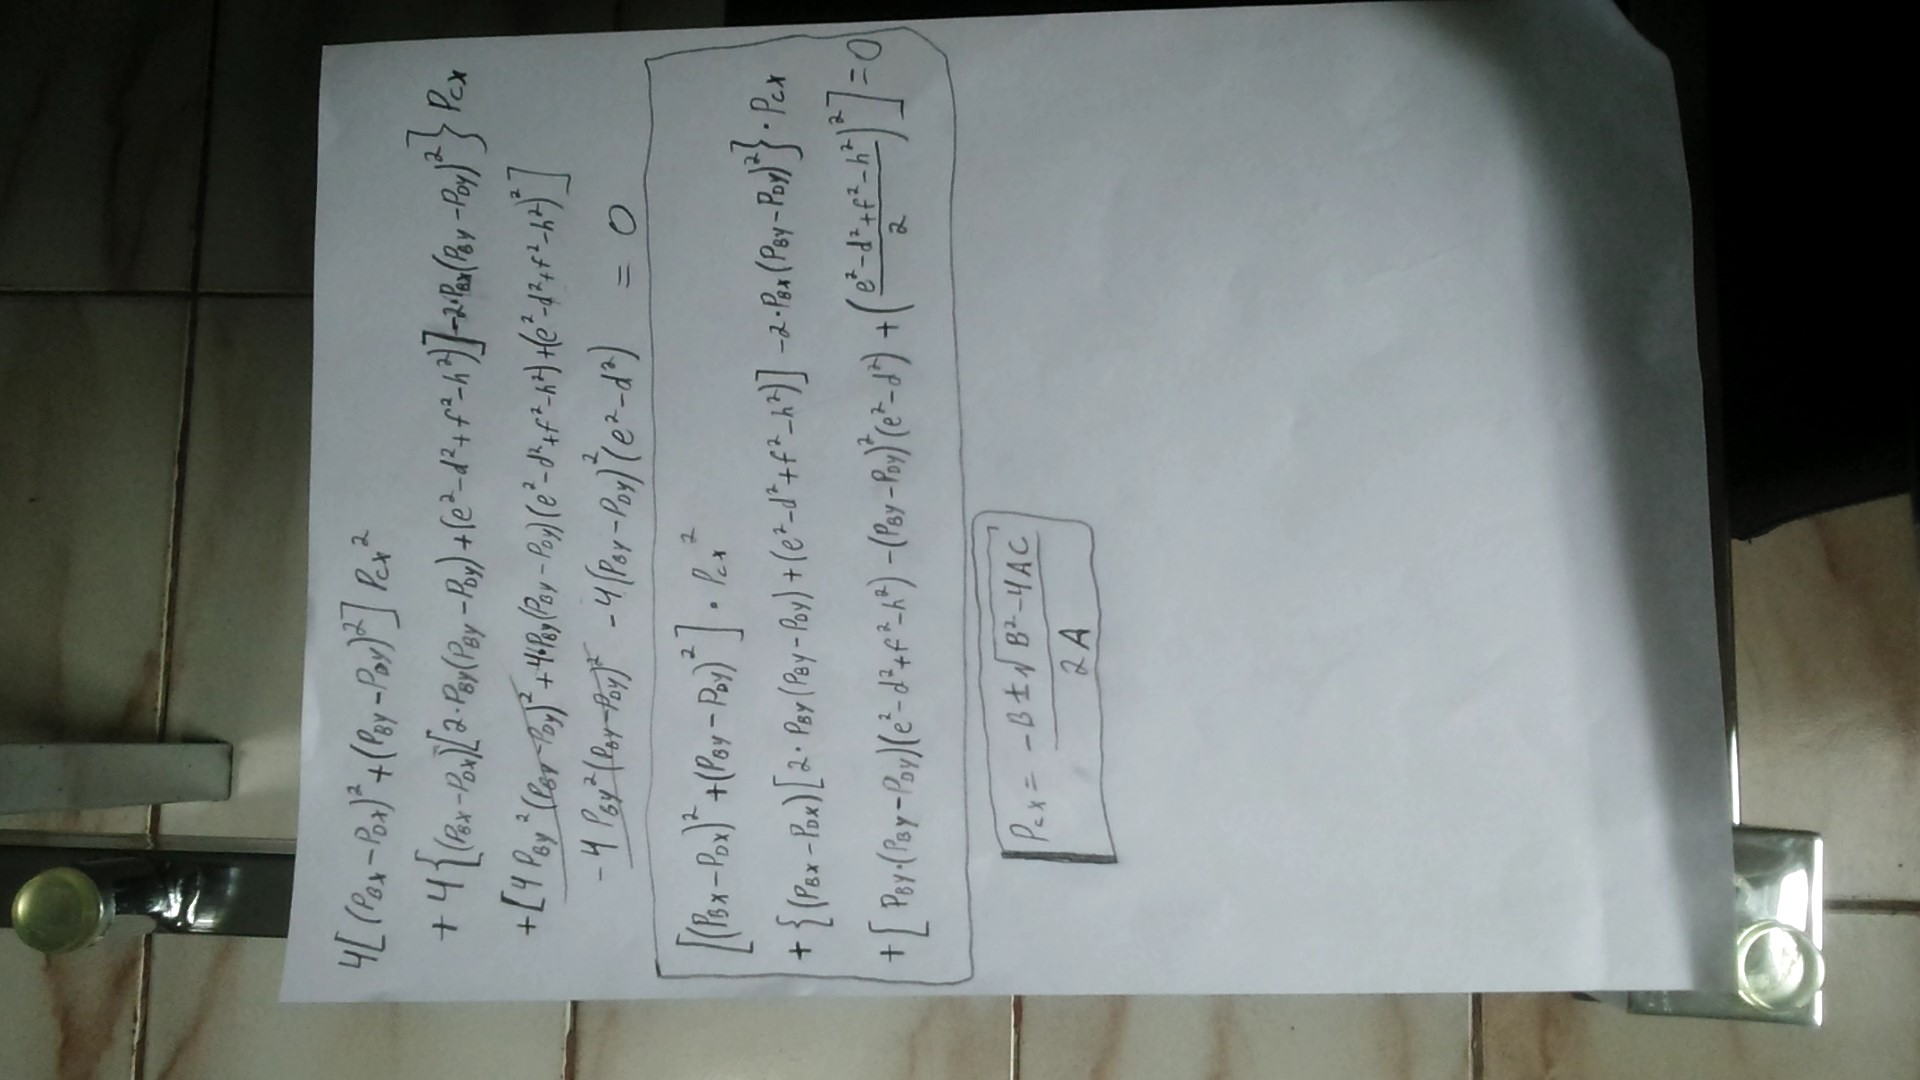 4[(P_Bx-P_Dx)²+(P_By-P_Dy)²] P_cx²
+4{(P_Bx-P_Dx)[2·P_By(P_By-P_Dy)+(e²-d²+f²-h²)]-2·P_Bx(P_By-P_Dy)²} P_cx
+[4 P_By²(P_By-P_Dy)²+4·P_By(P_By-P_Dy)(e²-d²+f²-h²)+(e²-d²+f²-h²)²]
-4 P_By²(P_By-P_Dy)² -4(P_By-P_Dy)²(e²-d²) = 0
[(P_Bx-P_Dx)²+(P_By-P_Dy)²]·P_cx²
+{(P_Bx-P_Dx)[2·P_By(P_By-P_Dy)+(e²-d²+f²-h²)] -2·P_Bx(P_By-P_Dy)²}·P_cx
+[P_By·(P_By-P_Dy)(e²-d²+f²-h²)-(P_By-P_Dy)²(e²-d²)+((e²-d²+f²-h²)/2)²]=0
P_cx = (-B±√(B²-4AC))/(2A)